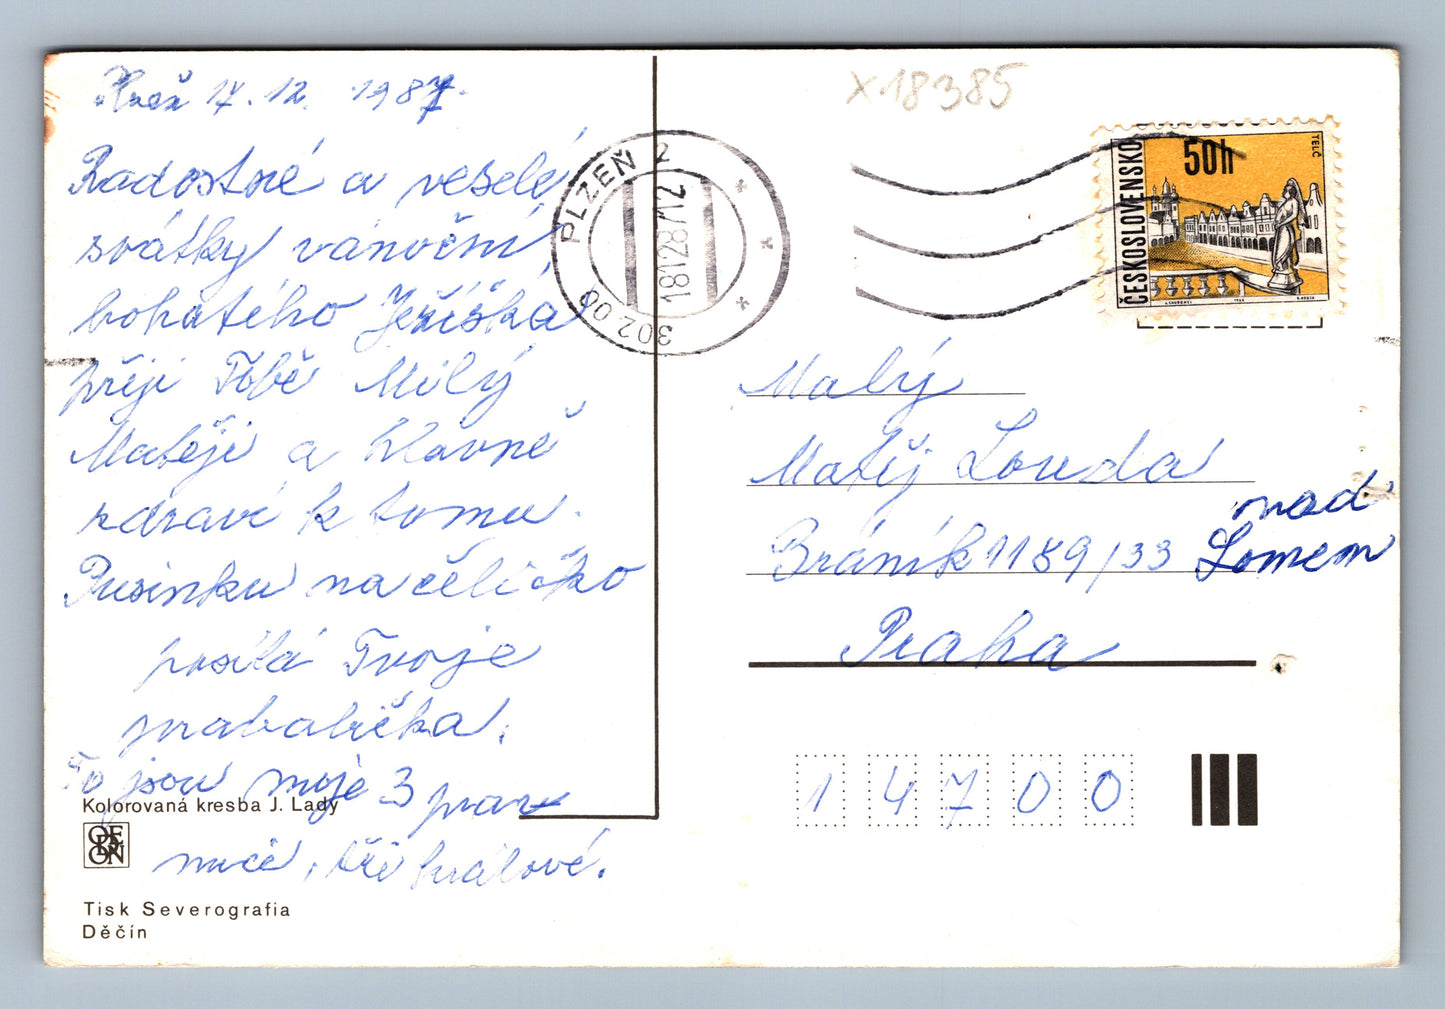 17. 12. 1987.
Radostné a veselé
svátky vánoční,
bohatého Ježíška
přeji Tobě Milý
Matěji a hlavně
zdraví k tomu.
Pusinku na čelíčko
posílá Tvoje
prababička.
To jsou moje 3 prav
nuci, tři králové.
Kolorovaná kresba J. Lady
ORBIS
Tisk Severografia
Děčín
X18385
PLZEŇ 2
302 00
18128712
ČESKOSLOVENSKO
50h
TELČ
Malý
Matěj Louda
Bráník 1189/33 nad
Lomem
Praha
14700